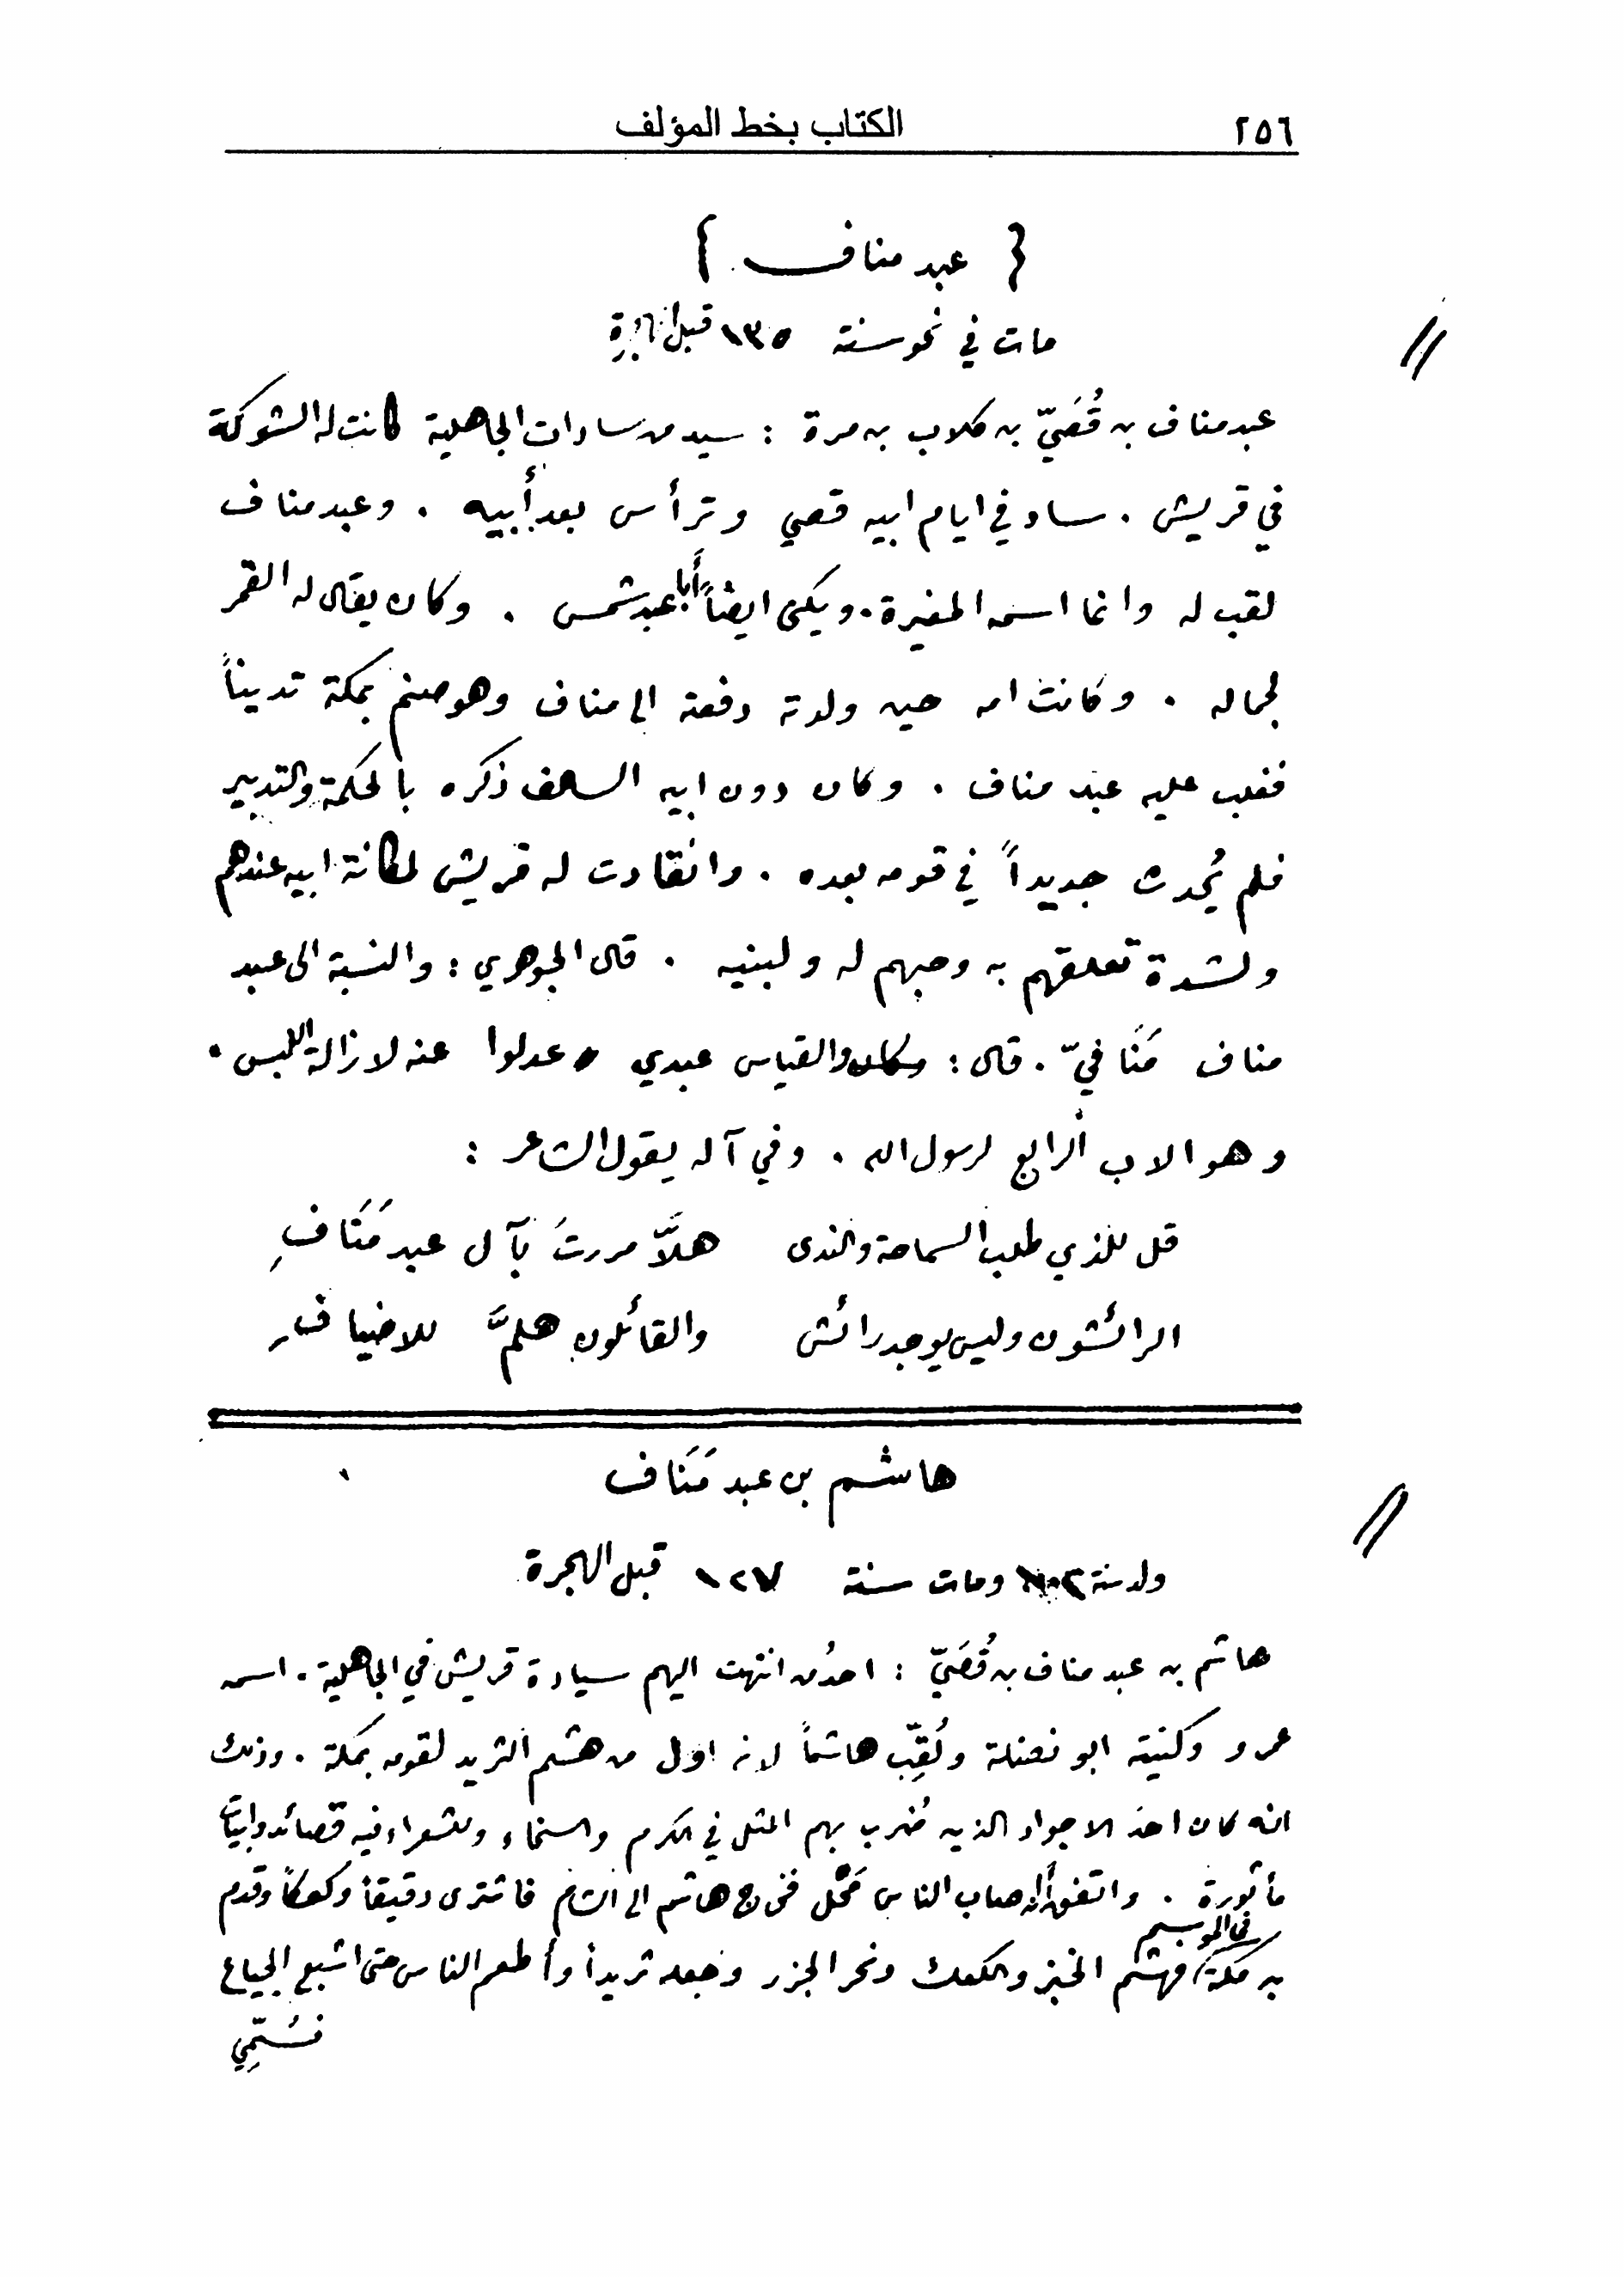 ٢٥٦ الكتاب بخط المؤلف
{ عبد مناف }
مات في نحو سنة ١٣٥ قبل الهجرة
عبد مناف بن قُصَيّ بن كلاب بن مرة : سيد من سادات الجاهلية كانت له الشوكة
في قريش . ساد في ايام ابيه قصي وترأس بعد أبيه . وعبد مناف
لقب له وانما اسمه المغيرة . ويكنى ايضاً أبا عبد شمس . وكان يقال له القمر
لجماله . وكانت امه حين ولدته دفعته الى مناف وهو صنم بمكة تديناً
فغلب عليه عبد مناف . وكان دون ابيه السالف ذكره بالحكمة والتدبير
فلم يُحدث جديداً في قومه بعده . وانقادت له قريش لمكانة ابيه عندهم
ولشدة تعلقهم به وحبهم له ولبنيه . قال الجوهري : والنسبة الى عبد
مناف مَنَافيّ . قال : والقياس عبدي عدلوا عنه لازالة اللبس .
وهو الاب الرابع لرسول الله . وفي آله يقول الشاعر :
قل للذي طلب السماحة والندى هلاَّ مررتَ بآل عبد مَنَافِ
الرائشون وليس يوجد رائش والقائلون هلمَّ للاضيافِ
هاشم بن عبد مَنَاف
ولد سنة ومات سنة ١٢٧ قبل الهجرة
هاشم بن عبد مناف بن قُصَيّ : احدُ من انتهت اليهم سيادة قريش في الجاهلية . اسمه
عمرو وكنيته ابو نضلة ولُقِّب هاشماً لانه اول من هشم الثريد لقومه بمكة . وذلك
انه كان احدَ الاجواد الذين ضُرب بهم المثل في الكرم والسخاء وللشعراء فيه قصائد وابيات
مأثورة . واتفق أن اصاب الناس مَحْل فخرج هاشم الى الشام فاشترى دقيقاً وكعكاً وقدم
في الموسم
به مكة فهشم الخبز والكعك ونحر الجزر وجعله ثريداً وأطعم الناس حتى اشبع الجياع
فسُمّي